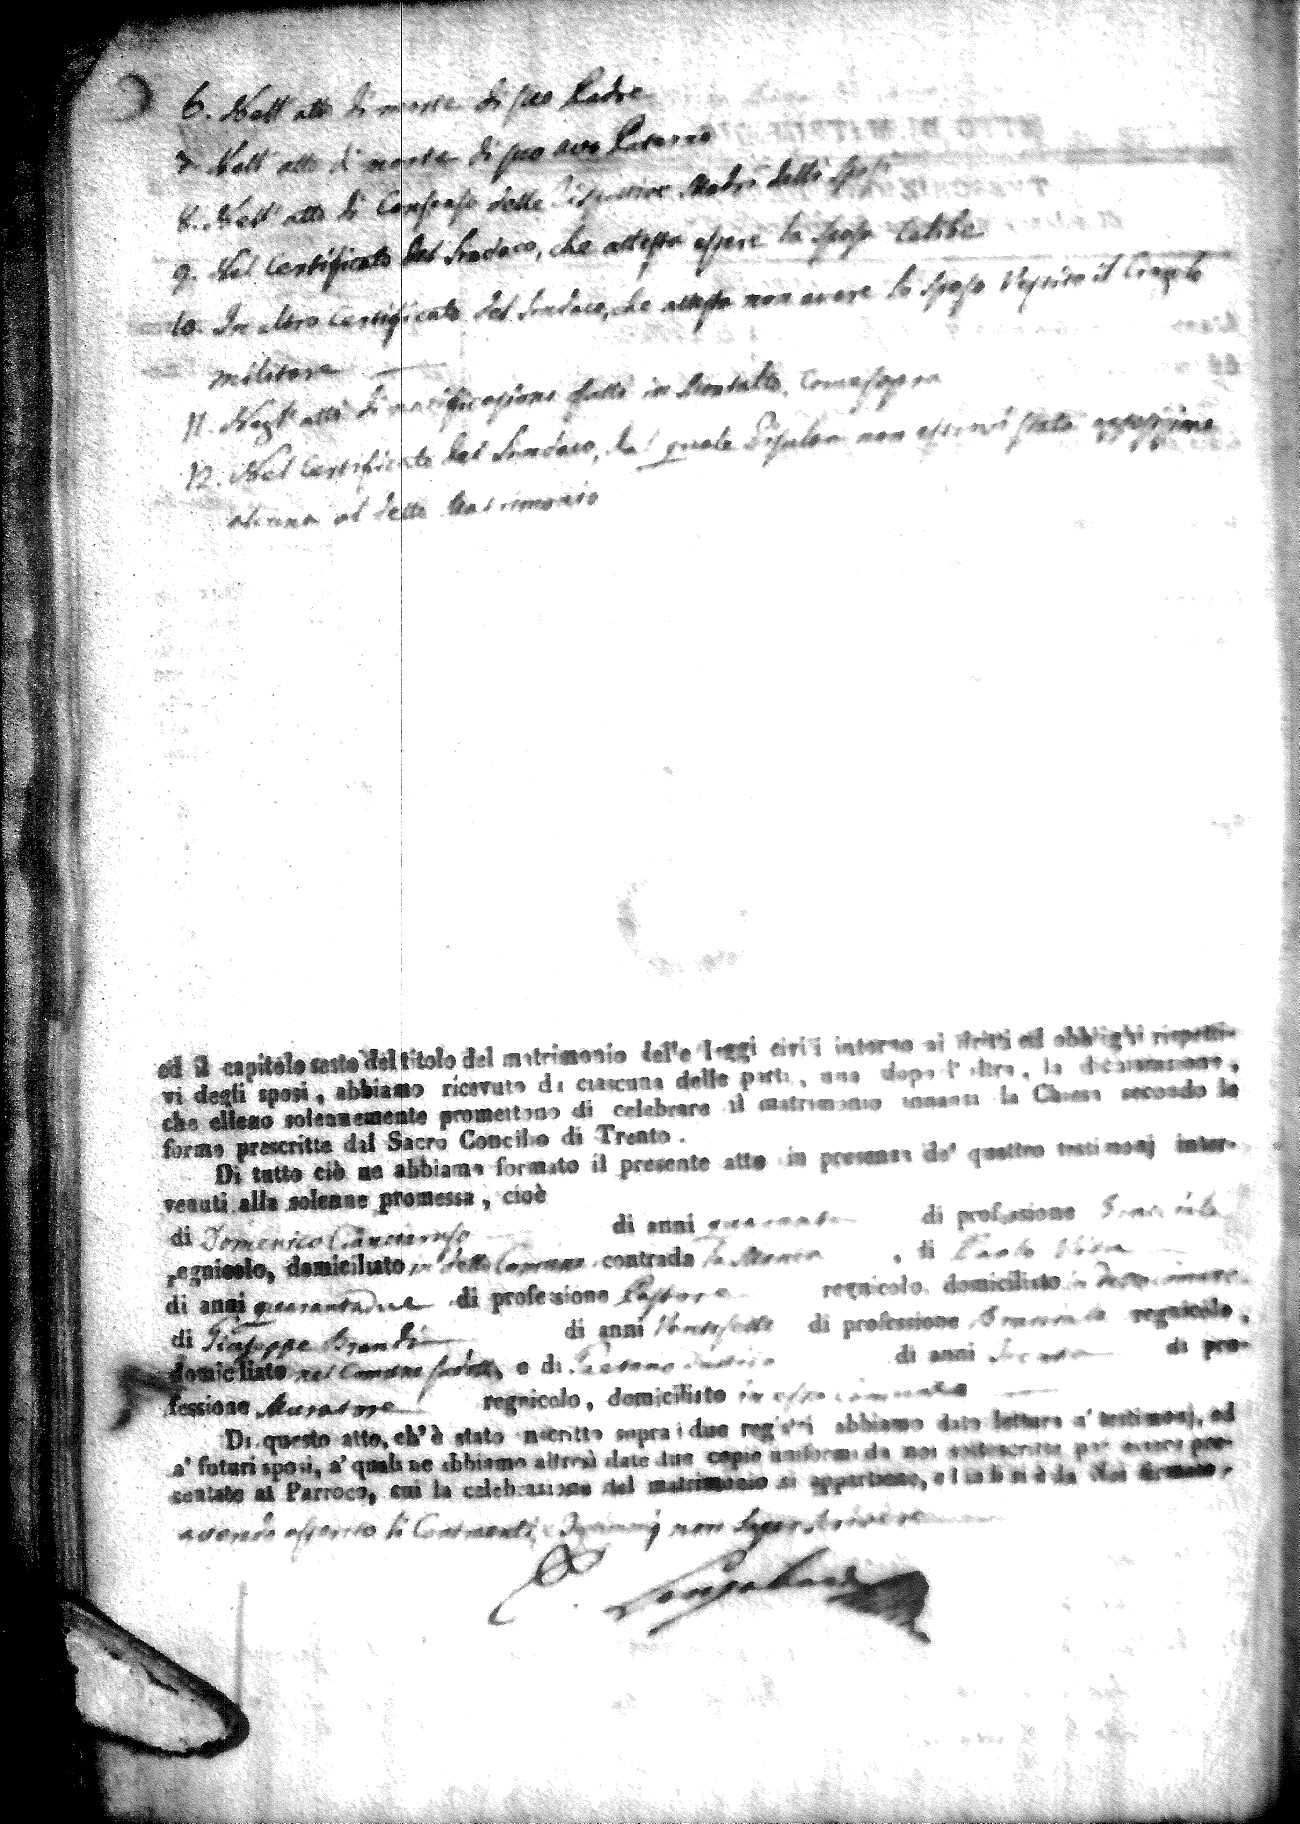 6. Nell' atto di morte di suo Padre
7. Nell' atto di morte di suo avo Paterno
8. Nell' atto di Consenso delle rispettive Madri delli sposi
9. Nel Certificato del Sindaco, che attesta essere lo sposo Celibe
10. In altro Certificato del Sindaco, che attesta non avere lo sposo il Congedo
militare
11. Negli atti di notificazione fatti in Comesopra
12. Nel Certificato del Sindaco, dal quale risulta non esservi stata opposizione
alcuna al detto Matrimonio
ed il capitolo sesto del titolo del matrimonio delle leggi civili intorno ai dritti ed obblighi rispetti-
vi degli sposi, abbiamo ricevuto da ciascuna delle parti, una dopo l'altra, la dichiarazione,
che elleno solennemente promettono di celebrare il matrimonio innanzi la Chiesa secondo le
forme prescritte dal Sacro Concilio di Trento.
Di tutto ciò ne abbiamo formato il presente atto in presenza de' quattro testimonj inter-
venuti alla solenne promessa, cioè
di Domenico di anni quaranta di professione
regnicolo, domiciliato in detto Comune contrada , di Paolo
di anni quarantadue di professione Pastore regnicolo, domiciliato in detto Comune
di Giuseppe di anni ventisette di professione regnicolo,
domiciliato nel Comune , e di di anni di pro-
fessione Muratore regnicolo, domiciliato in esso Comune
Di questo atto, ch'è stato inscritto sopra i due registri abbiamo dato lettura a' testimonj, ed
a' futuri sposi, a' quali ne abbiamo altresì date due copie uniformi da noi sottoscritte per essere pre-
sentate al Parroco, cui la celebrazione del matrimonio si appartiene, e indi si è da Noi firmato,
avendo asserito li Contraenti, e Testimonj non saper scrivere